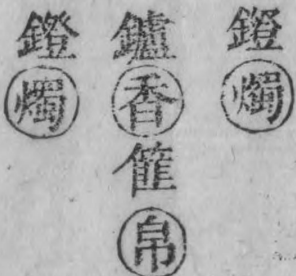 鐙燭
鑪香篚帛
鐙燭